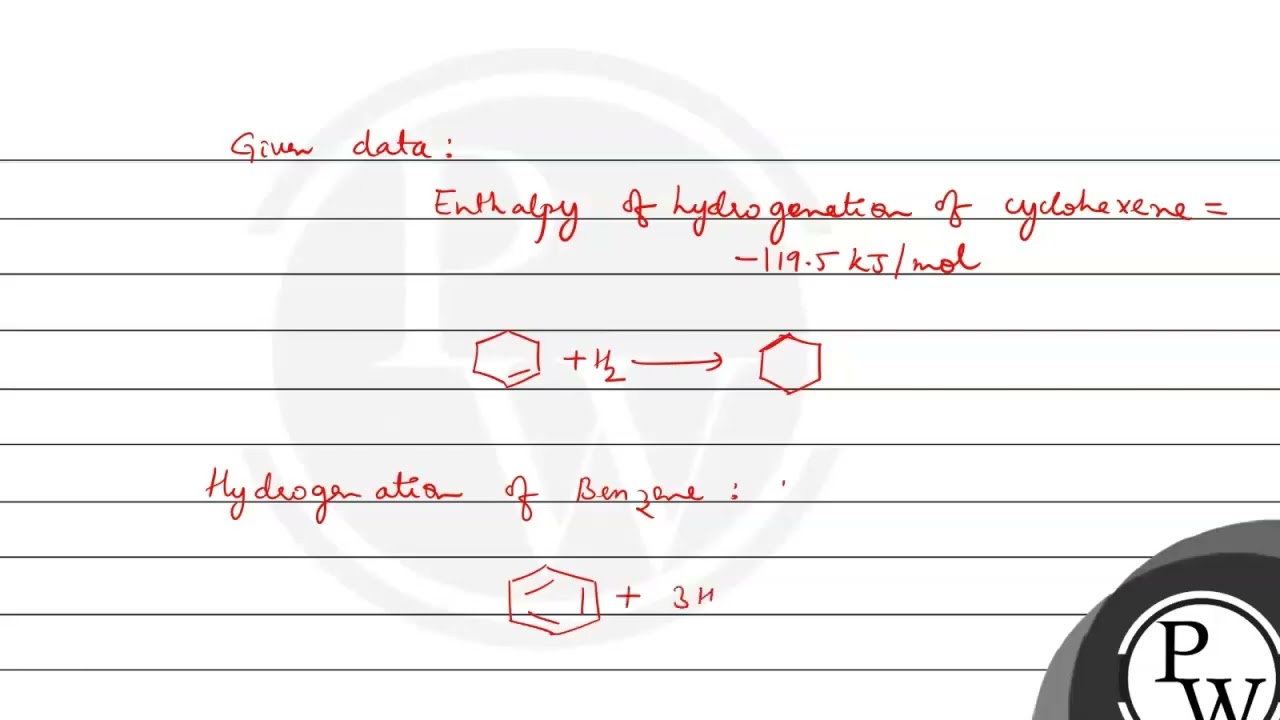 Given data:
Enthalpy of hydrogenation of cyclohexene =
-119.5 kJ/mol
+ H₂ ⟶
Hydrogenation of Benzene:
+ 3H
P
W
P
W